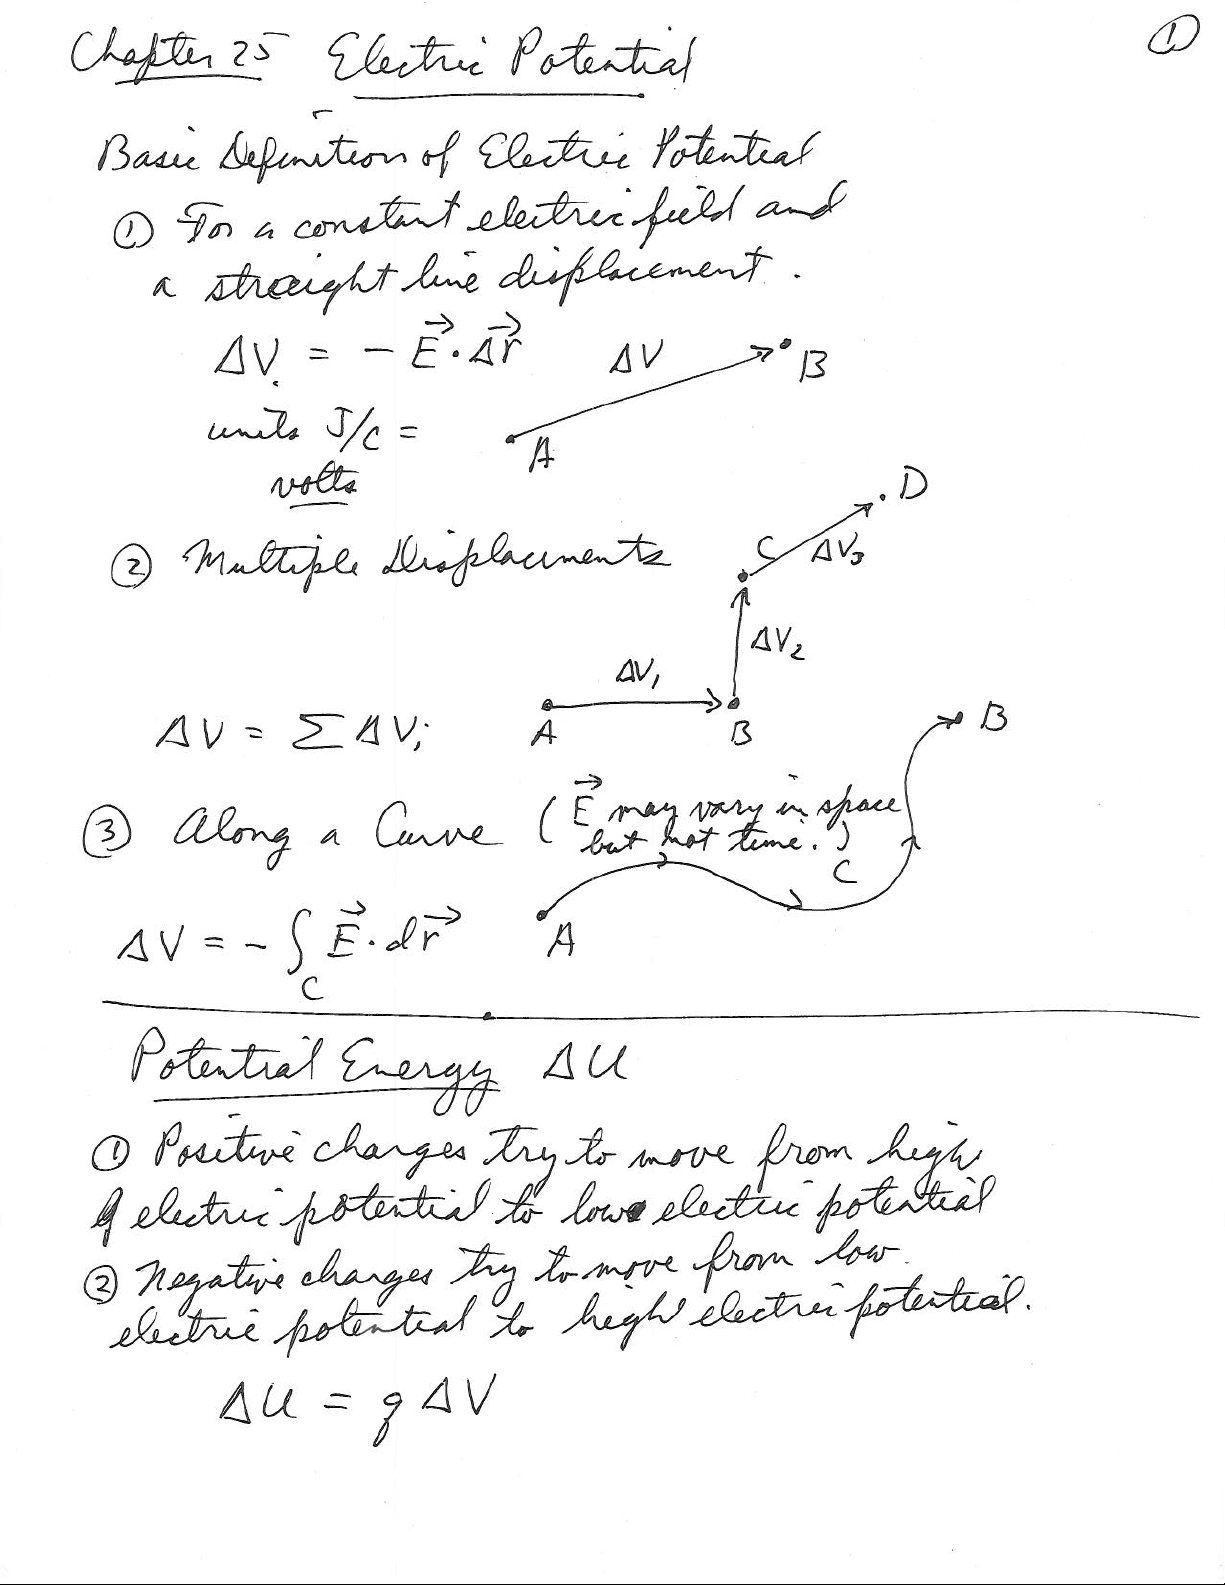 Chapter 25 Electric Potential
①
Basic Definition of Electric Potential
① For a constant electric field and
a straight line displacement.
ΔV = - E⃗ · Δr⃗
ΔV
B
A
units J/C =
volts
② Multiple Displacements
D
C
ΔV₃
ΔV₂
ΔV₁
A
B
ΔV = Σ ΔVᵢ
③ Along a Curve (E⃗ may vary in space
but not time.)
B
C
A
ΔV = - ∫ E⃗ · dr⃗
C
Potential Energy ΔU
① Positive charges try to move from high
electric potential to low electric potential
② Negative charges try to move from low
electric potential to high electric potential.
ΔU = q ΔV